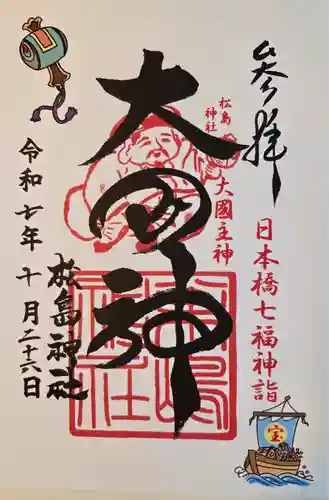 奉拝
日本橋七福神詣
宝
松島
神社
大國主神
大国神
松島神社
令和七年十月二十六日
松島神社